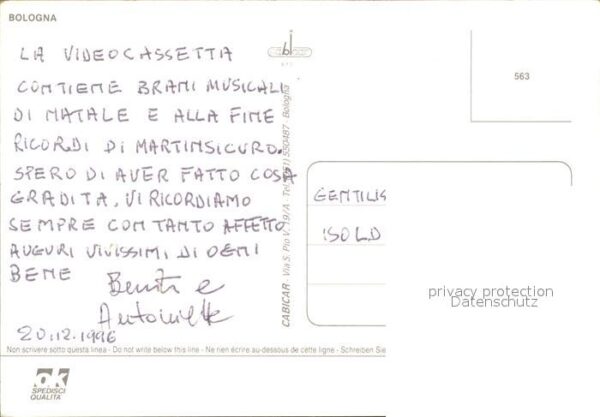 BOLOGNA
LA VIDEOCASSETTA
CONTIENE BRANI MUSICALI
DI NATALE E ALLA FINE
RICORDI DI MARTINSICURO.
SPERO DI AVER FATTO COSA
GRADITA, VI RICORDIAMO
SEMPRE CON TANTO AFFETTO
AUGURI VIVISSIMI DI OGNI
BENE
e
20.12.1996
563
CABICAR - Via S. Pio V, 19/A - Tel. (051) 550487 - Bologna
GENTILIS
ISOLD
privacy protection
Datenschutz
Non scrivere sotto questa linea - Do not write below this line - Ne rien écrire au-dessous de cette ligne - Schreiben Sie
ok
SPEDISCI
QUALITA'